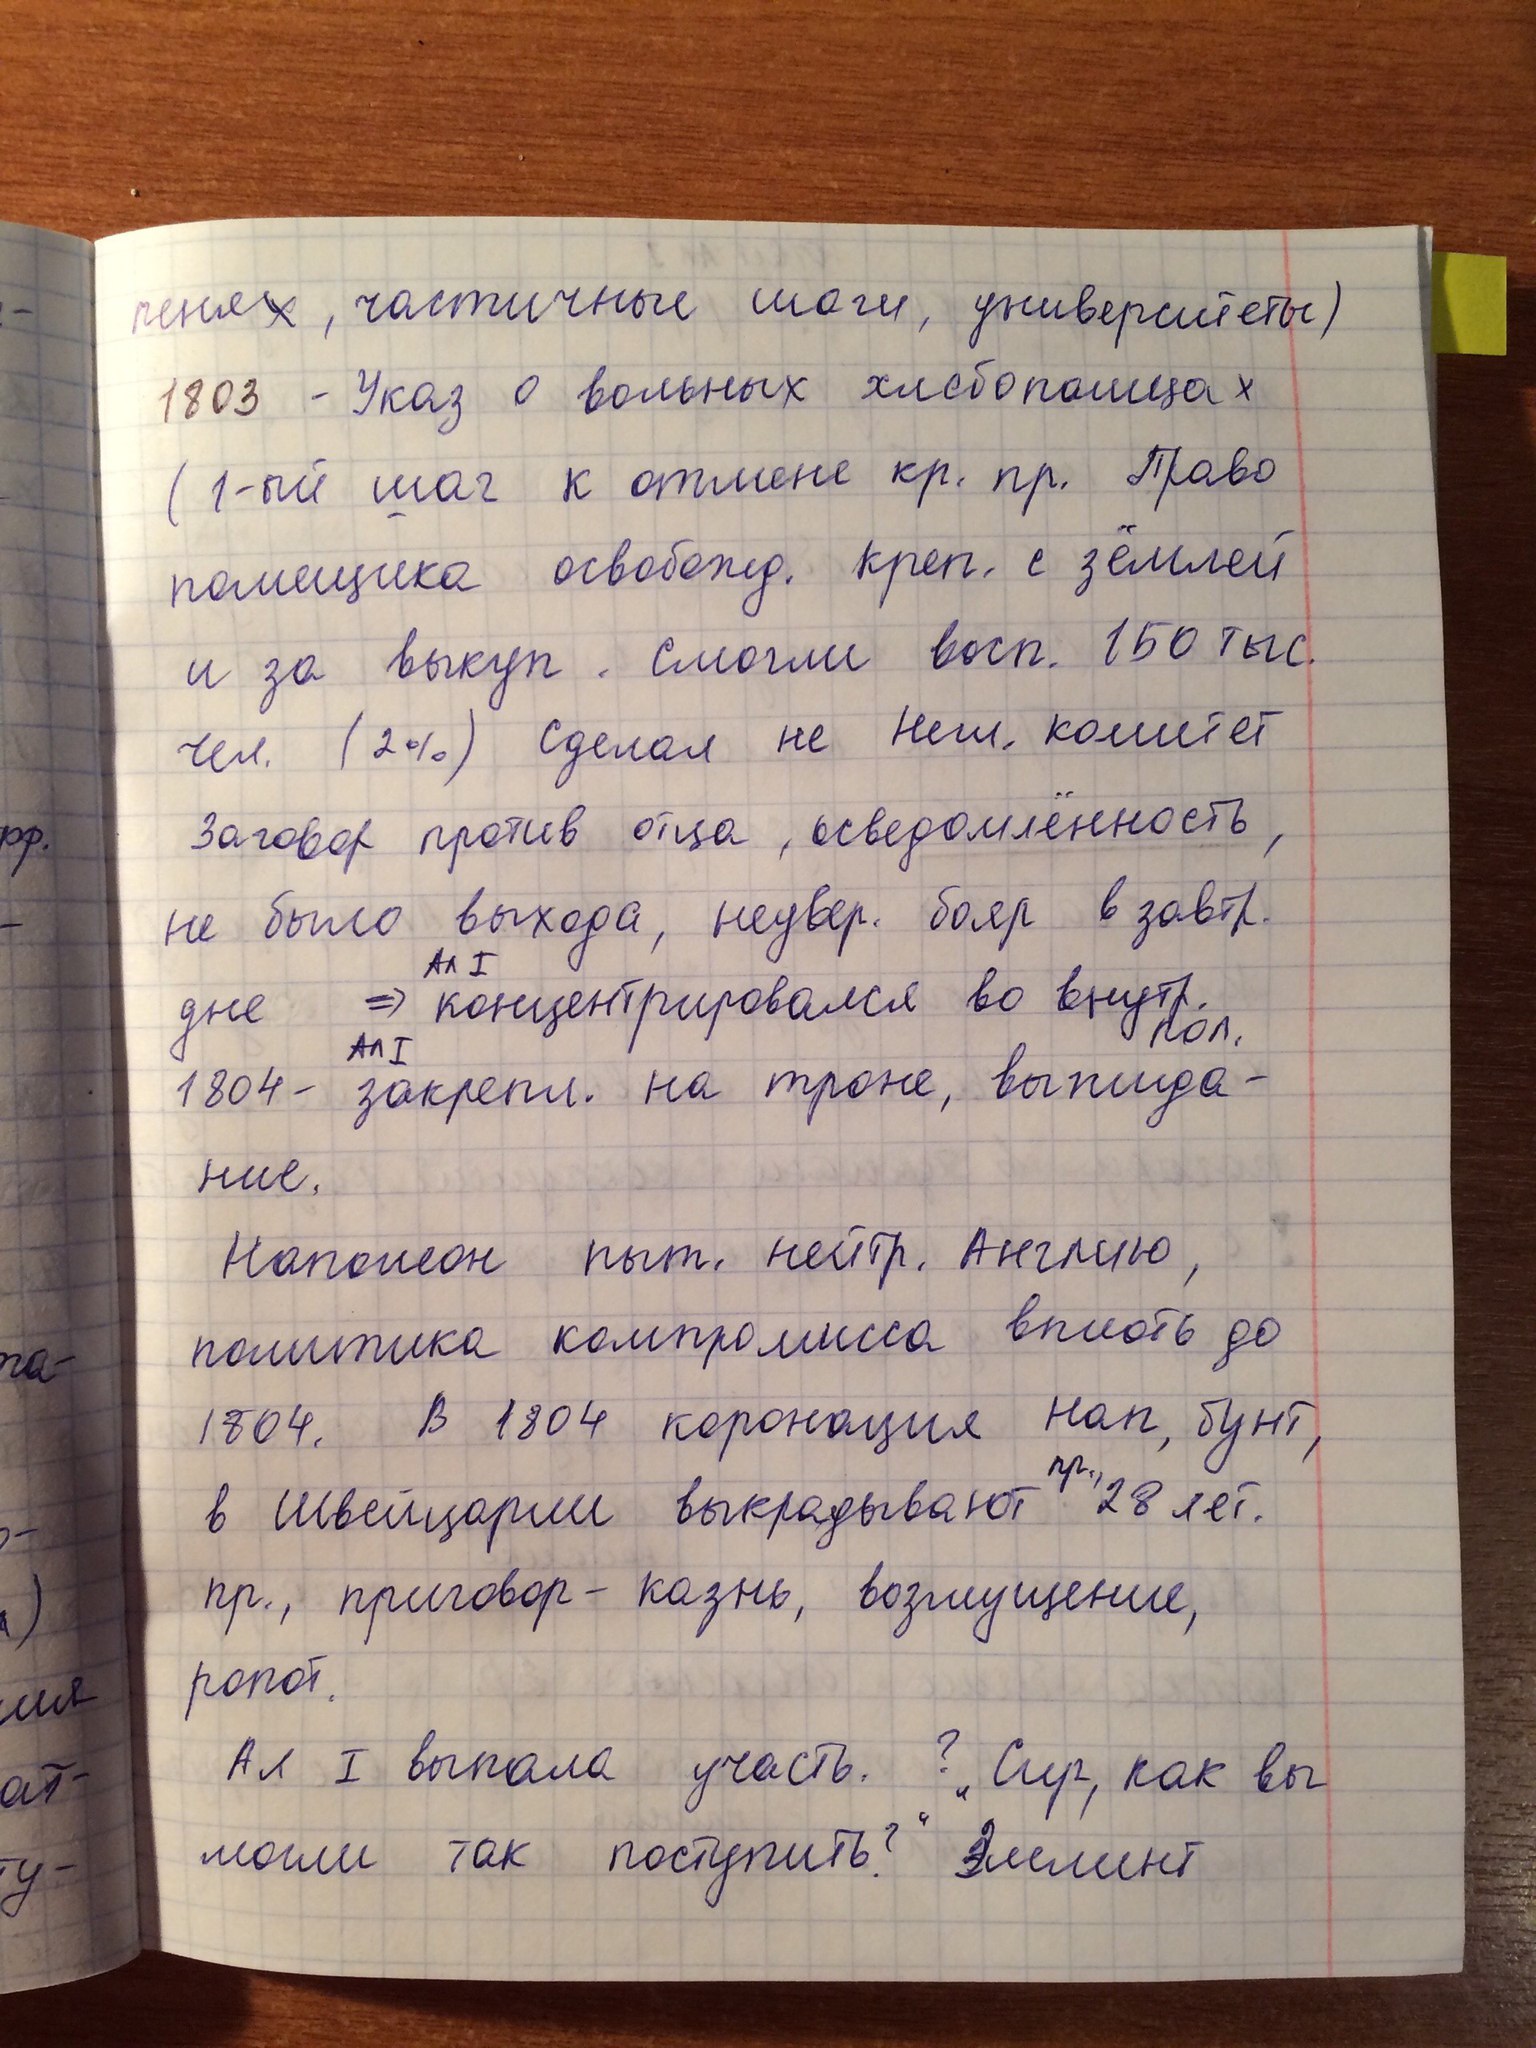 пенях, частичные шаги, университеты)
1803 - Указ о вольных хлебопашцах
(1-ый шаг к отмене кр. пр. Право
помещика освобожд. креп. с зёмлей
и за выкуп. Смогли восп. 150 тыс.
чел. (2%) Сделал не Негл. комитет
Заговор против отца, осведомлённость,
не было выхода, неувер. бояр в завтр.
Ал I
дне ⇒ концентрировался во внутр.
пол.
Ал I
1804 - закрепл. на троне, выжида-
ние.
Наполеон пыт. нейтр. Англию,
политика компромисса вплоть до
1804. В 1804 коронация Нап, бунт,
в Швейцарии выкрадывают пр., 28 лет.
пр., приговор - казнь, возмущение,
ропот.
Ал I выпала участь. ? „Сир, как вы
могли так поступить?“ Элемент
рр.
та-
ния
ат-
ту-